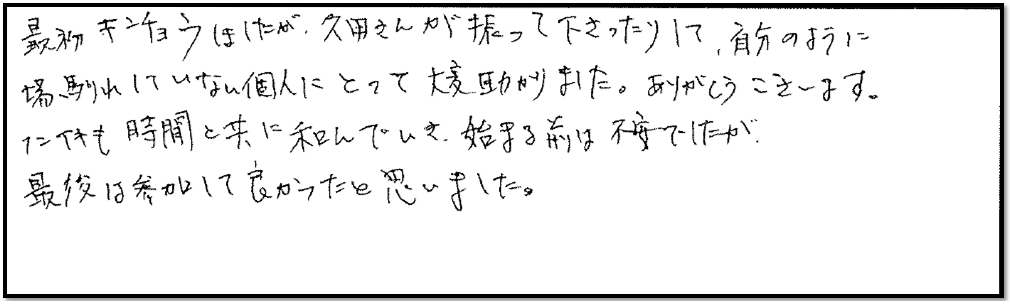 最初キンチョウしましたが、久田さんが振って下さったりして、自分のように
場馴れしていない個人にとって大変助かりました。ありがとうございます。
も時間と共に和んでいき、始まる前は不安でしたが、
最後は参加して良かったと思いました。